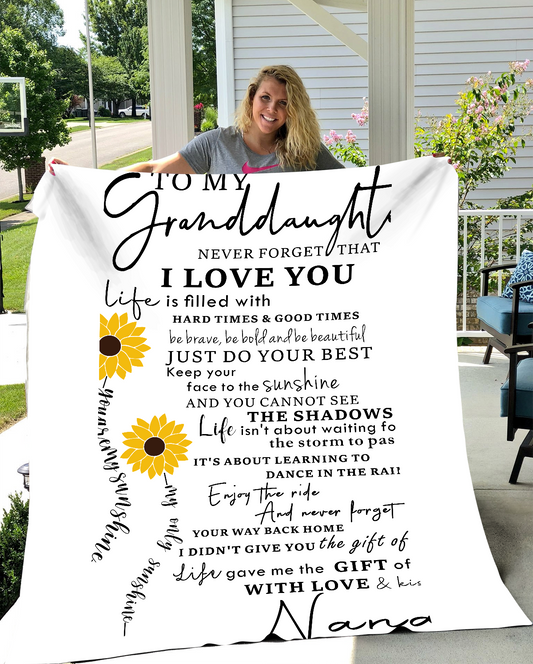 TO MY
Granddaught
NEVER FORGET THAT
I LOVE YOU
Life is filled with
HARD TIMES & GOOD TIMES
be brave, be bold and be beautiful
JUST DO YOUR BEST
Keep your
face to the sunshine
AND YOU CANNOT SEE
THE SHADOWS
Life isn't about waiting fo
the storm to pas
IT'S ABOUT LEARNING TO
DANCE IN THE RAI
Enjoy the ride
And never forget
YOUR WAY BACK HOME
I DIDN'T GIVE YOU the gift of
Life gave me the GIFT of
WITH LOVE & kis
Nana
you are my sunshine
my only sunshine